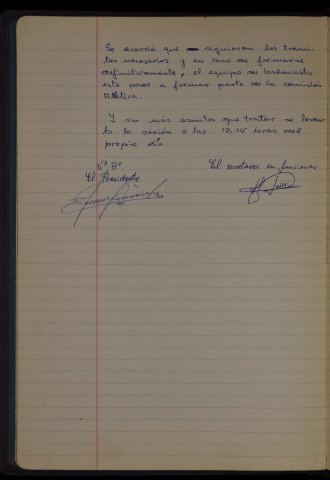 Se acordó que siguieran los trami-
tes necesarios y en caso de formarse
definitivamente, el equipo de baloncesto
este pase a formar parte de la comisión
Atlética.
Y sin más asuntos que tratar se levan-
tó la sesión a las 12,45 horas del
propio día
Vº Bº
El Presidente
El secretario en funciones